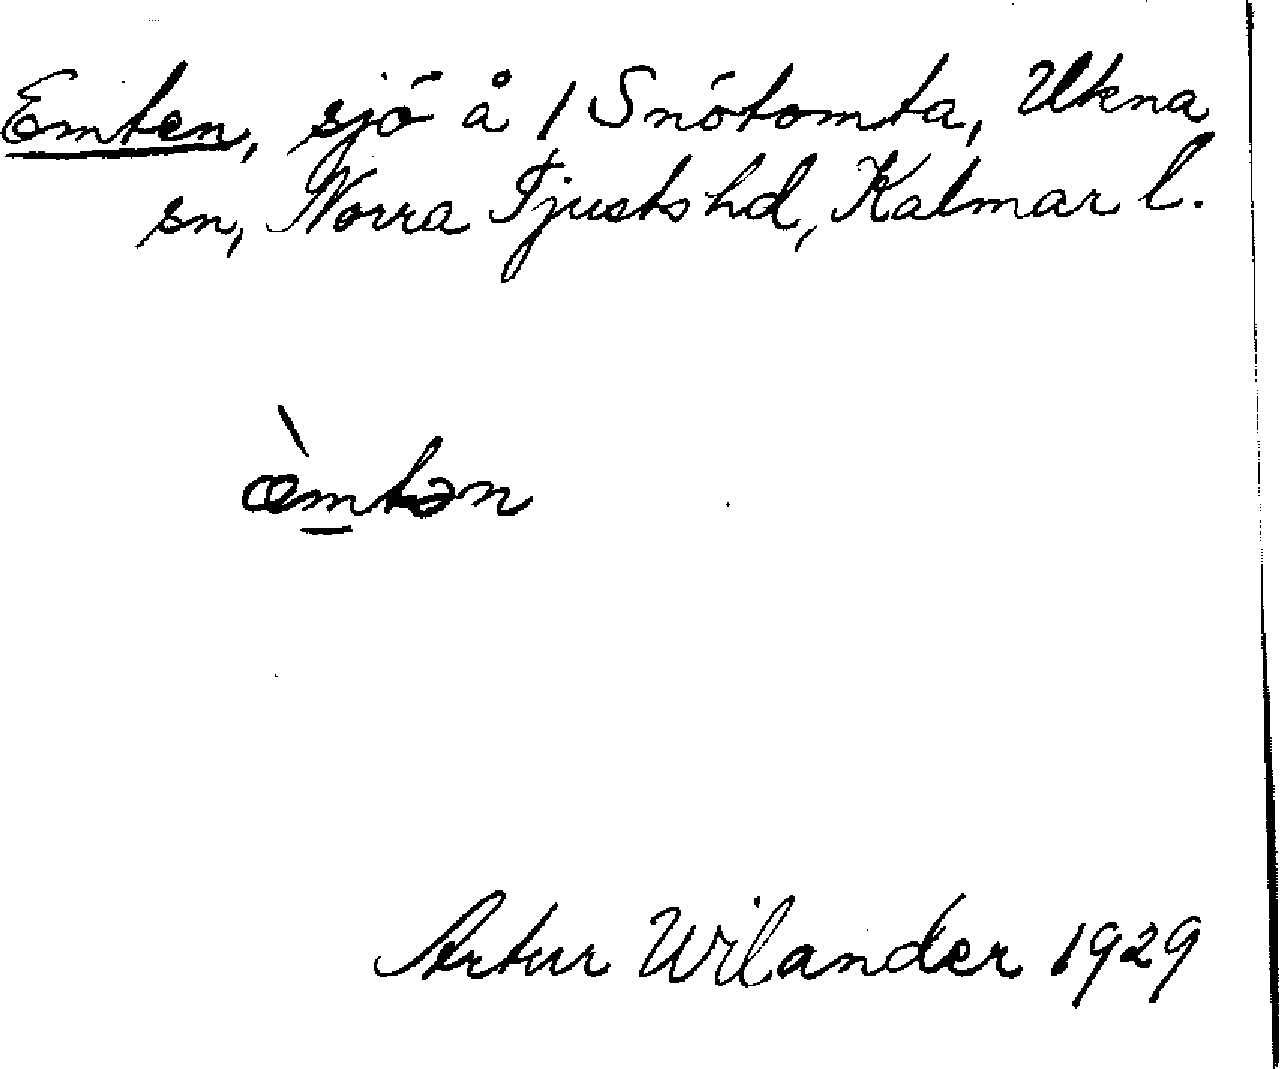 Emten, sjö å 1 Snötomta, Ukna
sn, Norra Tjusts hd, Kalmar l.
æ̀m̱tən
Artur Wilander 1929